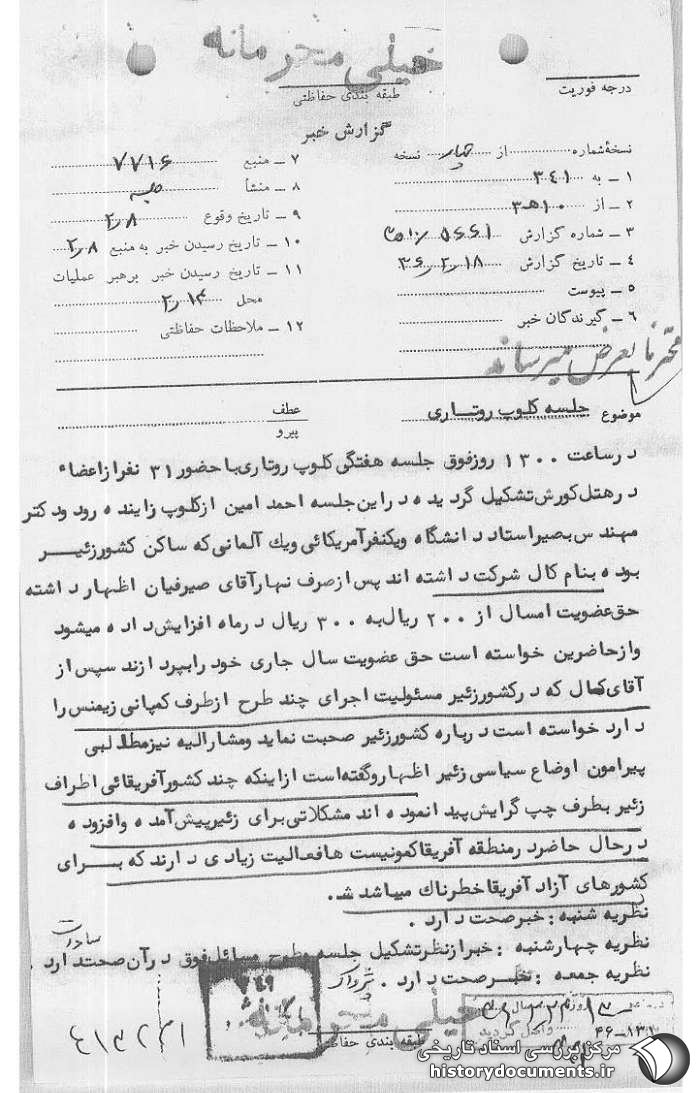 خیلی محرمانه
طبقه بندی حفاظتی
درجه فوریت
گزارش خبر
نسخهٔ شماره از چهار نسخه
۱ ـ به ۳۴۱
۲ ـ از ۱۰ هـ ۳
۳ ـ شماره گزارش
۴ ـ تاریخ گزارش ۳۶٫۲٫۱۸
۵ ـ پیوست
۶ ـ گیرندگان خبر
۷ ـ منبع ۷۷۱۶
۸ ـ منشأ
۹ ـ تاریخ وقوع ۲٫۸
۱۰ ـ تاریخ رسیدن خبر به منبع ۲٫۸
۱۱ ـ تاریخ رسیدن خبر برهبر عملیات
محل ۲٫۱۴
۱۲ ـ ملاحظات حفاظتی
محترماً بعرض میرساند
موضوع جلسه کلوپ روتاری
عطف
پیرو
در ساعت ۱۳۰۰ روز فوق جلسه هفتگی کلوپ روتاری با حضور ۳۱ نفر از اعضاء
در هتل کورش تشکیل گردیده در این جلسه احمد امین از کلوپ زاینده رود و دکتر
مهندس بصیر استاد دانشگاه ویکنفر آمریکائی ویك آلمانی که ساکن کشور زئیر
بوده بنام کال شرکت داشته اند پس از صرف نهار آقای صیرفیان اظهار داشته
حق عضویت امسال از ۲۰۰ ریال به ۳۰۰ ریال در ماه افزایش داده میشود
و از حاضرین خواسته است حق عضویت سال جاری خود را بپردازند سپس از
آقای کال که در کشور زئیر مسئولیت اجرای چند طرح از طرف کمپانی زیمنس را
دارد خواسته است درباره کشور زئیر صحبت نماید و مشارالیه نیز مطالبی
پیرامون اوضاع سیاسی زئیر اظهار و گفته است از اینکه چند کشور آفریقائی اطراف
زئیر بطرف چپ گرایش پیدا نموده اند مشکلاتی برای زئیر پیش آمده و افزوده
در حال حاضر در منطقه آفریقا کمونیست ها فعالیت زیادی دارند که برای
کشورهای آزاد آفریقا خطرناك میباشد ش.
نظریه شنبه : خبر صحت دارد .
نظریه چهارشنبه : خبر از نظر تشکیل جلسه و طرح مسائل فوق در آن صحت دارد .
نظریه جمعه : خبر صحت دارد .
خیلی محرمانه
طبقه بندی حفاظتی
مرکز بررسی اسناد تاریخی
historydocuments.ir